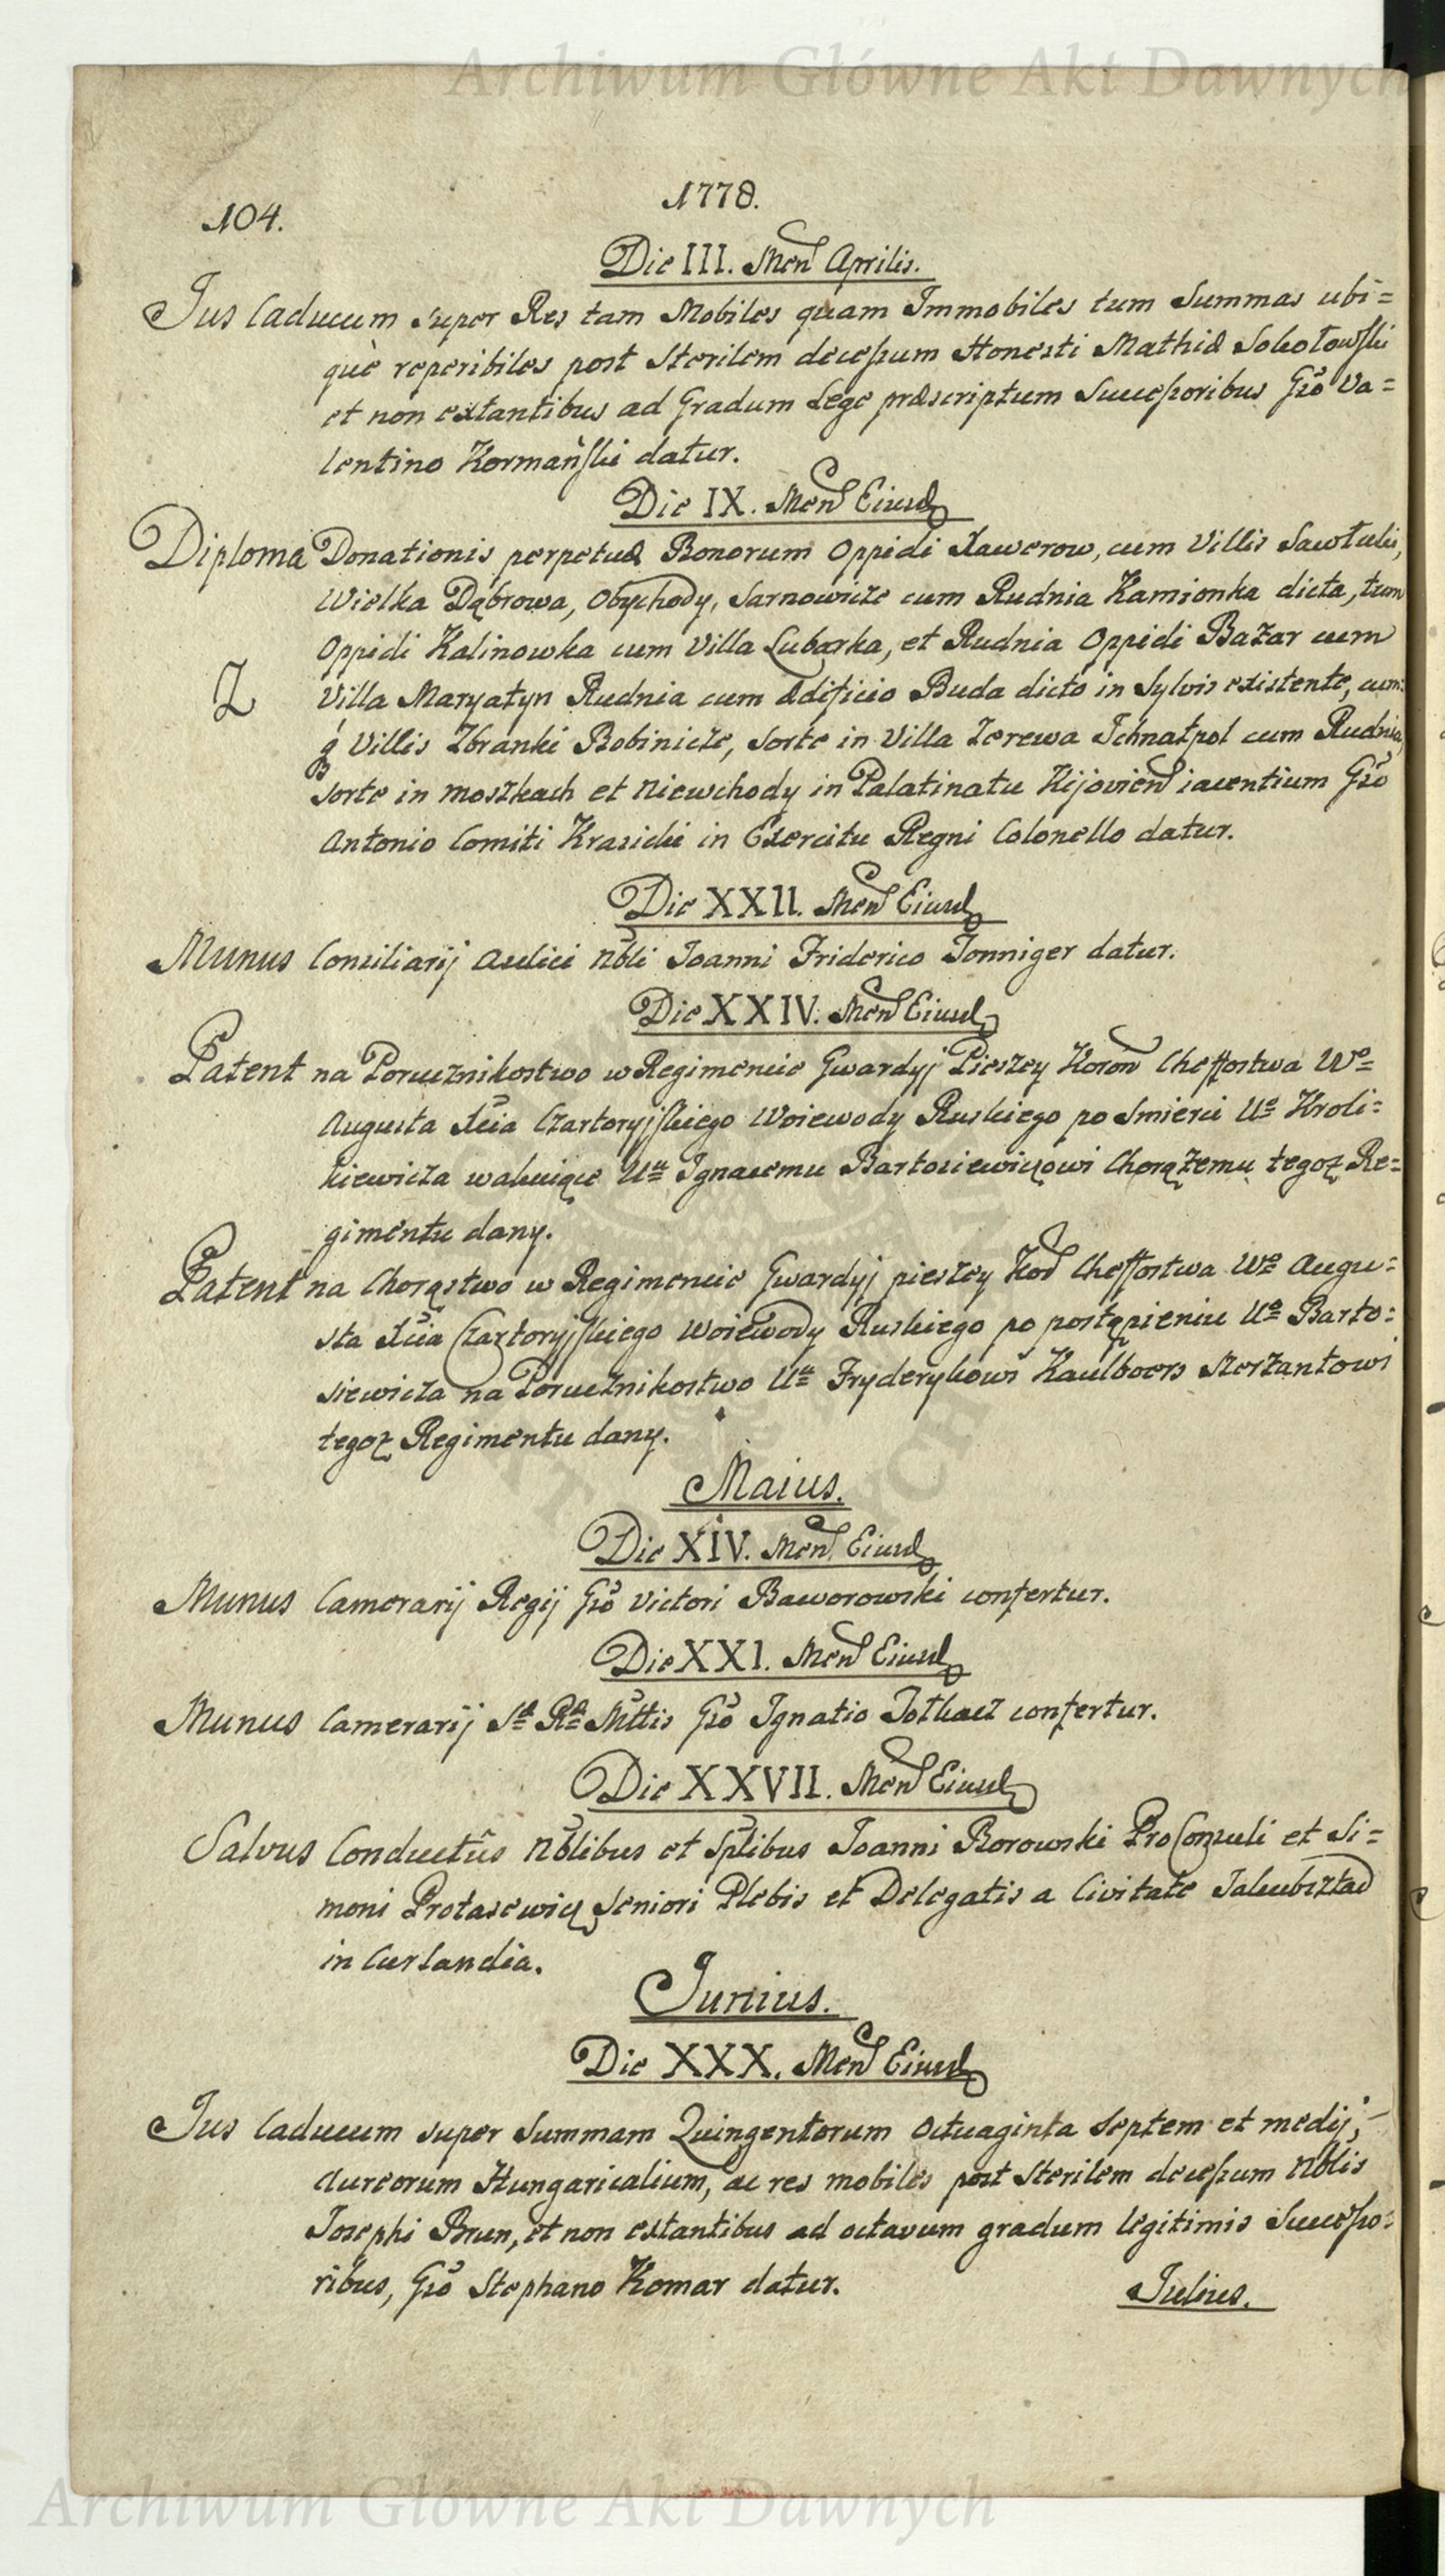 Archiwum Główne Akt Dawnych
1778.
104.
Die III. Men Aprilis.
Jus Caducum super Res tam Mobiles quam Immobiles tum Summas ubi=
què reperibiles post Sterilem decessum Honesti Mathiæ Sokołowski
et non extantibus ad Gradum Lege præscriptum Successoribus Gso Va=
lentino Kormański datur.
Die IX. Men Eiusd
Diploma Donationis perpetuæ Bonorum Oppidi Xawerow, cum Villis Sawłuki,
Wielka Dąbrowa, Obychody, Sarnowicze cum Rudnia Kamionka dicta, tum
Oppidi Kalinowka cum Villa Lubarka, et Rudnia Oppidi Bazar cum
Villa Maryatyn Rudnia cum ædificio Buda dicto in Sylvis existente, cum:
Z
q Villis Zbranki Bobinicze, Sorte in Villa Zerewa Ichnatpol cum Rudnia,
Sorte in Moszkach et Niewchody in Palatinatu Kijovien iacentium Gso
Antonio Comiti Krasicki in Exercitu Regni Colonello datur.
Die XXII. Men Eiusd
Munus Consiliarij Aulici Nbli Joanni Friderico Jonniger datur.
Die XXIV. Men Eiusd
Patent na Porucznikostwo w Regimencie Gwardyj Pieszey Koron Cheffostwa Wo=
Augusta Xcia Czartoryjskiego Woiewody Ruskiego po Smierci Uo Kroli=
kiewicza wakuiące Uu Ignacemu Bartosiewiczowi Chorążemu tegoż Re=
gimentu dany.
Patent na Chorąstwo w Regimencie Gwardyj pieszey Kor Cheffostwa Wo Augu=
sta Xcia Czartoryjskiego Woiewody Ruskiego po postąpieniu Uo Barto=
siewicza na Porucznikostwo Uu Fryderykowi Kaulboers Sterżantowi
tegoż Regimentu dany.
Maius.
Die XIV. Men Eiusd
Munus Camerarij Regij Gso Victori Baworowski confertur.
Die XXI. Men Eiusd
Munus Camerarij Sæ Ræ Mttis Gso Ignatio Totkacz confertur.
Die XXVII. Men Eiusd
Salvus Conductûs Nblibus et Sptlibus Joanni Borowski ProConsuli et Si=
moni Protasewicz Seniori Plebis et Delegatis a Civitate Jakubsztad
in Curlandia.
Junius.
Die XXX. Men Eiusd
Jus Caducum super Summam Quingentorum Octuaginta Septem et medij,
Aureorum Hungaricalium, ac res mobiles post Sterilem decessum Nblis
Josephi Brun, et non extantibus ad octavum gradum legitimis Successo=
ribus, Gso Stephano Komar datur.
Julius.
Archiwum Główne Akt Dawnych